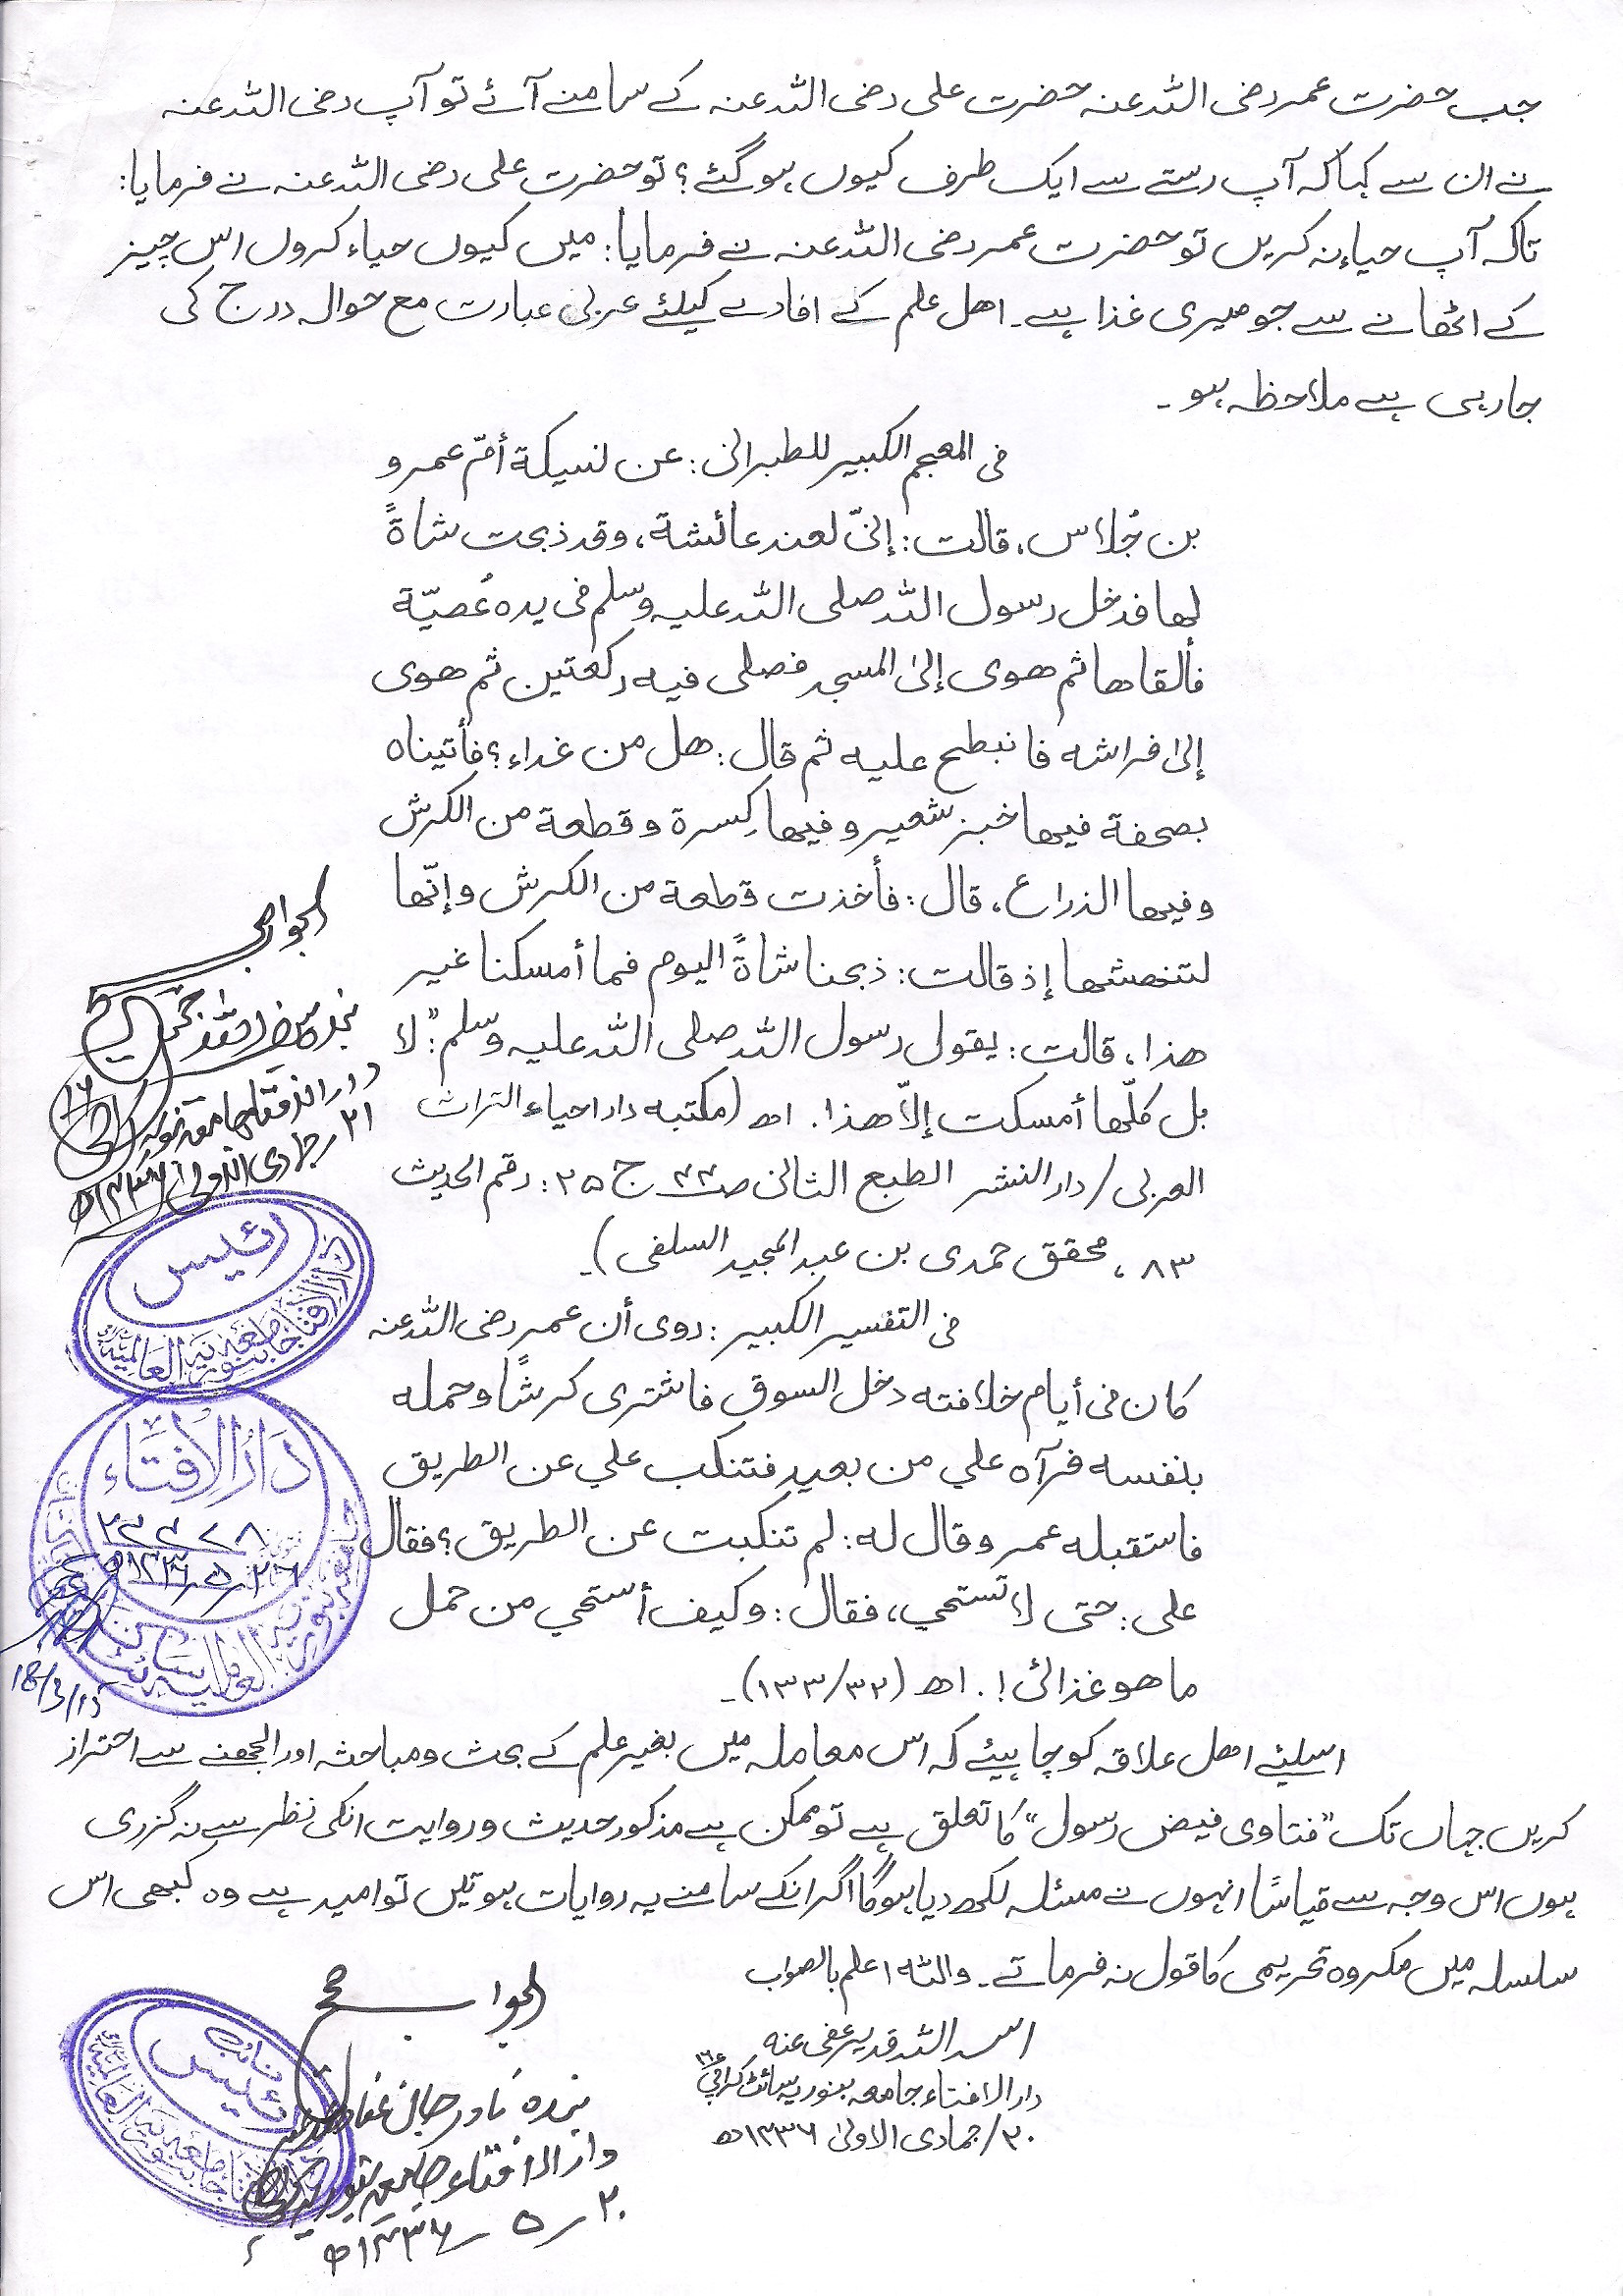 جب حضرت عمر رضی اللہ عنہ حضرت علی رضی اللہ عنہ کے سامنے آئے تو آپ رضی اللہ عنہ
نے ان سے کہا کہ آپ رستے سے ایک طرف کیوں ہو گئے؟ تو حضرت علی رضی اللہ عنہ نے فرمایا:
تاکہ آپ حیاء نہ کریں تو حضرت عمر رضی اللہ عنہ نے فرمایا: میں کیوں حیاء کروں اس چیز
کے اٹھانے سے جو میری غذا ہے۔ اھل علم کے افادے کیلئے عربی عبارت مع حوالہ درج کی
جا رہی ہے ملاحظہ ہو۔
فی المعجم الکبیر للطبرانی: عن نسیکة أمّ عمرو
بن جُلاس، قالت: إنیّ لعند عائشة، وقد ذبحت شاةً
لها فدخل رسول اللہ صلی اللہ علیہ وسلم فی یدہ عُصیّة
فألقاها ثم هوی إلیٰ المسجد فصلی فیه رکعتین ثم هوی
إلیٰ فراشه فانبطح علیه ثم قال: هل من غداء؟ فأتیناه
بصحفة فیها خبز شعیر وفیها کِسرة وقطعة من الکرش
وفیها الذراع، قال: فأخذت قطعة من الکرش وإنّها
لتنهشها إذ قالت: ذبحنا شاةً الیوم فما أمسکنا غیر
هذا، قالت: یقول رسول اللہ صلی اللہ علیہ وسلم: "لا
بل کلّها أمسکت إلاّ هذا. اھ (مکتبه دار احیاء التراث
العربی/دار النشر الطبع الثانی صـ ۴۲ ج ۲۵: رقم الحدیث
۸۳، محقق حمدی بن عبد المجید السلفی)۔
فی التفسیر الکبیر: روی أن عمر رضی اللہ عنہ
کان فی أیام خلافته دخل السوق فاشتری کرشًا وحمله
بنفسه فرآه علي من بعید فتنکب علي عن الطریق
فاستقبله عمر وقال له: لم تنکبت عن الطریق؟ فقال
علی: حتی لا تستحي، فقال: وکیف أستحي من حمل
ما هو غذائی!. اھ (۱۳۳/۳۲)۔
اسلئے اھل علاقہ کو چاہیئے کہ اس معاملہ میں بغیر علم کے بحث ومباحثہ اور الجھنے سے احتراز
کریں جہاں تک "فتاوی فیض رسول" کا تعلق ہے تو ممکن ہے مذکور حدیث و روایت انکی نظر سے نہ گزری
ہوں اس وجہ سے قیاسًا انہوں نے مسئلہ لکھ دیا ہوگا اگر انکے سامنے یہ روایات ہوتیں تو امید ہے وہ کبھی اس
سلسلہ میں مکروہ تحریمی کا قول نہ فرماتے۔ واللہ اعلم بالصواب
اسد اللہ قدیر عفی عنه
دار الافتاء جامعه بنوریه سائٹ کراچی
۲۰/جمادی الاولیٰ ۱۴۳۶ھ
الجواب صحیح
بندہ نادر جان
دار الافتاء جامعہ بنوریہ
۲۰ـ۵ـ۱۴۳۶ھ
نائب
رئیس
الجواب صحیح
دار الافتاء جامعہ بنوریہ
۲۱ جمادی الاولی ۱۴۳۶ھ
رئیس
دار الافتاء جامعه بنوریه العالمیه
دَارُ الْاِفْتَاء
۲۶ـ۵ـ۱۴۳۶ھ
18/3/15